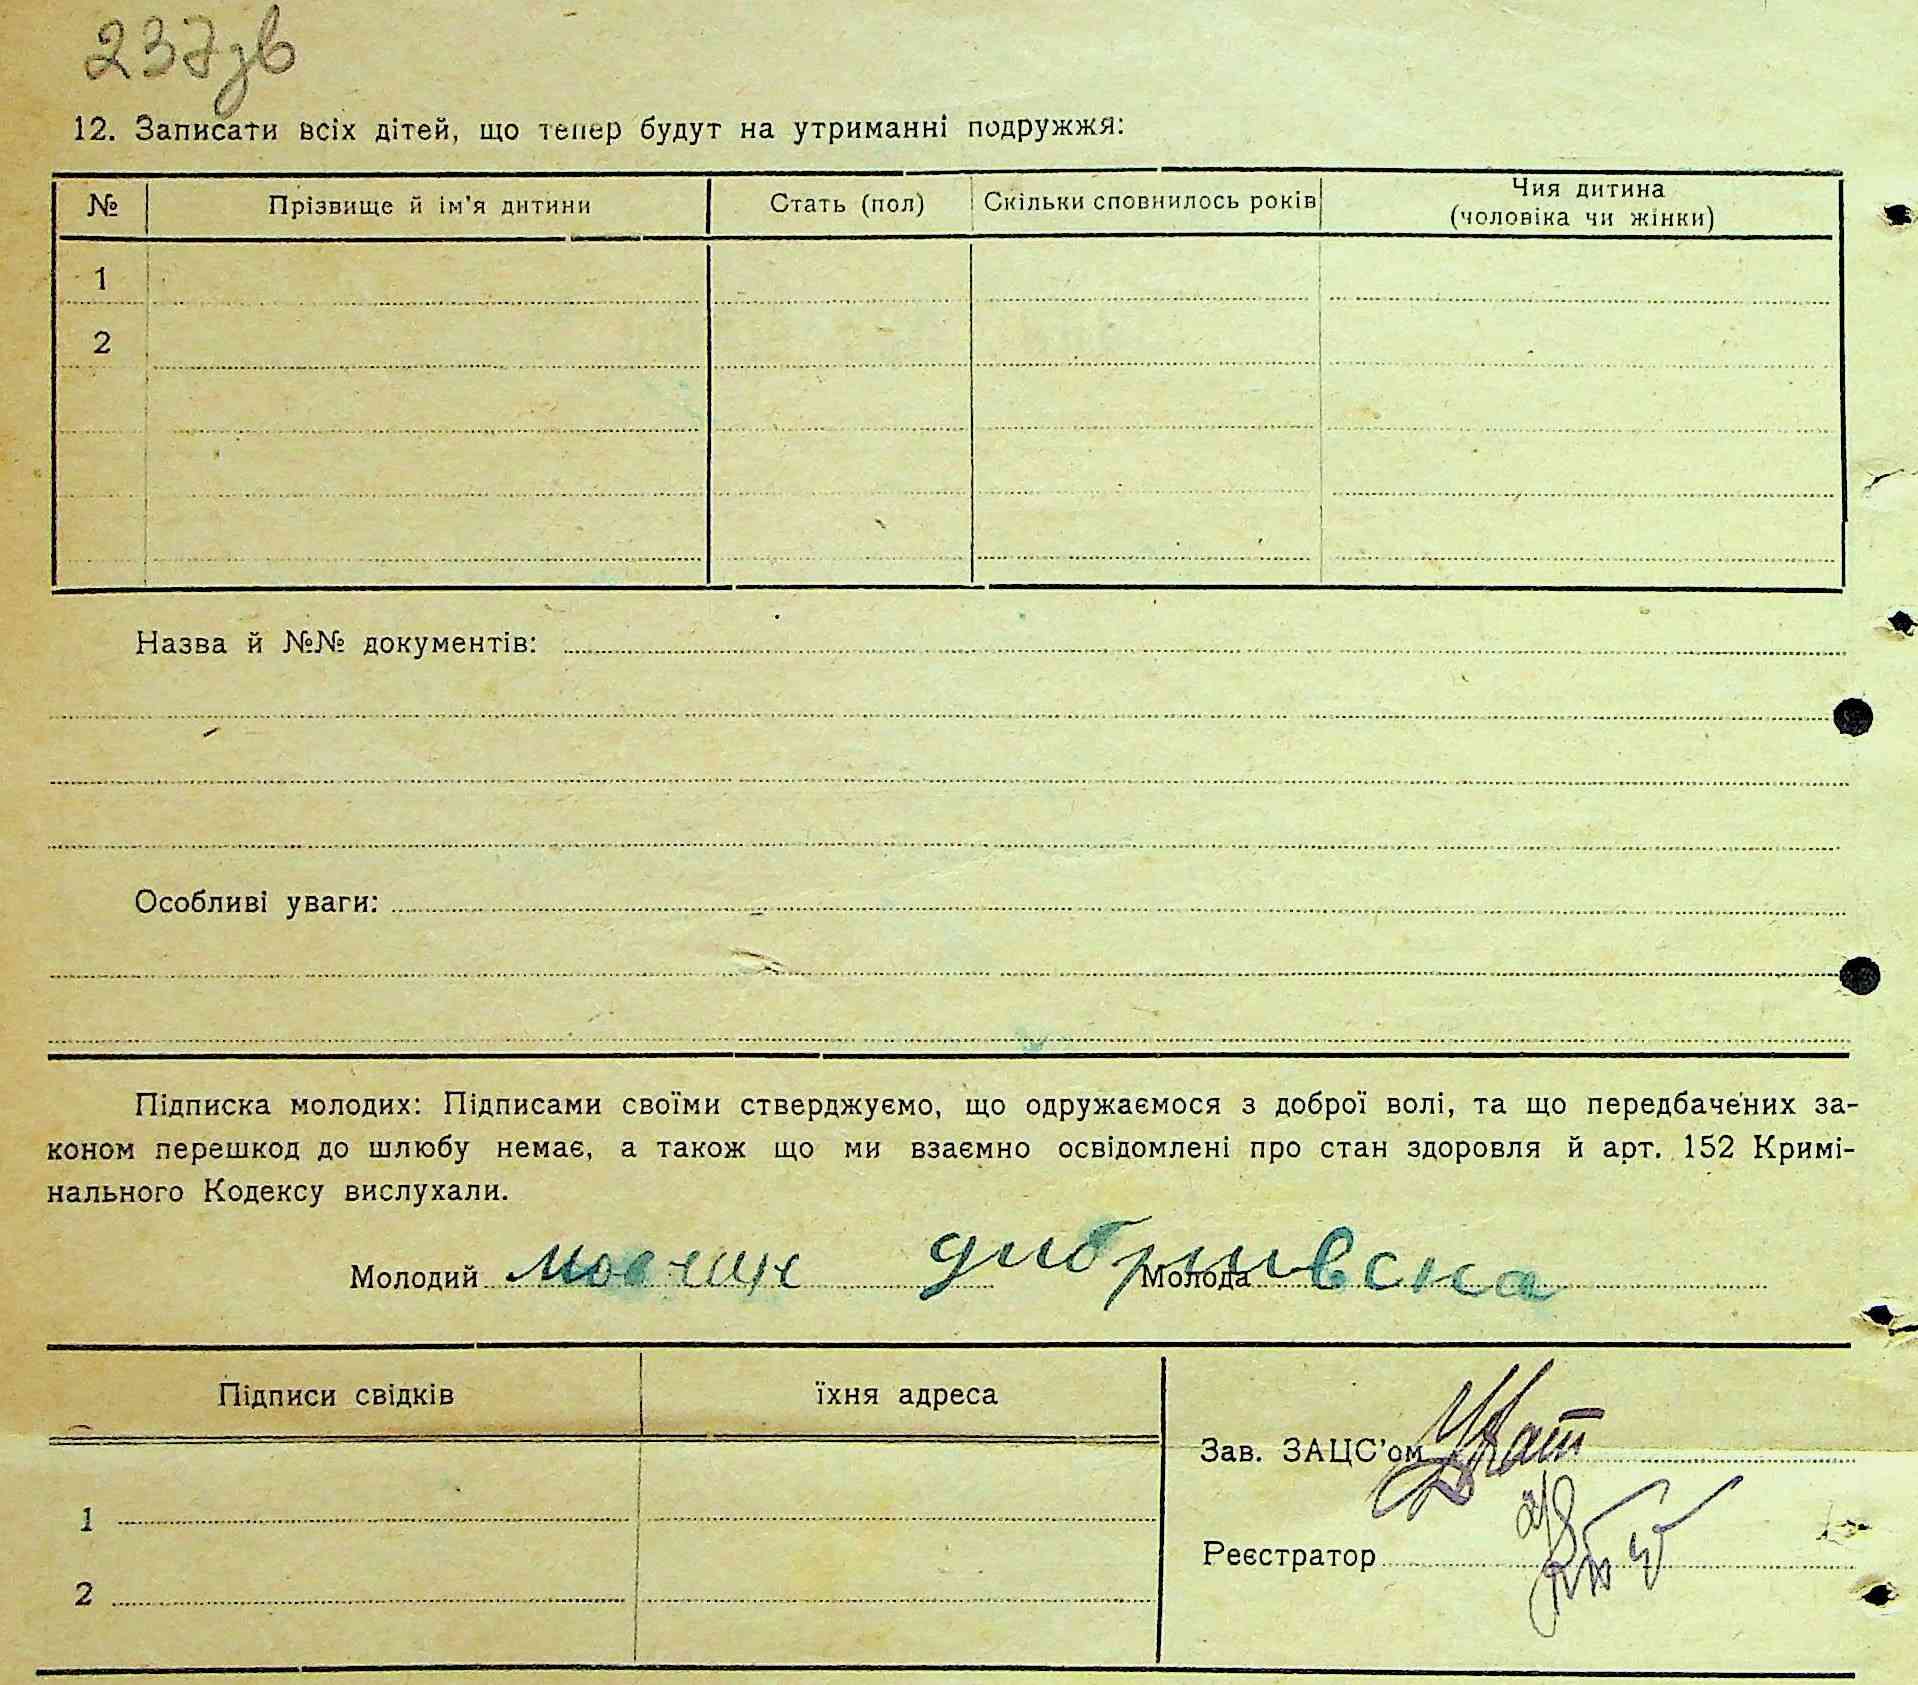 237зв
12. Записати всіх дітей, що тепер будут на утриманні подружжя:
№ Прізвище й ім'я дитини Стать (пол) Скільки сповнилось років Чия дитина (чоловіка чи жінки)
1
2
Назва й №№ документів:
Особливі уваги:
Підписка молодих: Підписами своїми стверджуємо, що одружаємося з доброї волі, та що передбачених за-
коном перешкод до шлюбу немає, а також що ми взаємно освідомлені про стан здоровля й арт. 152 Кримі-
нального Кодексу вислухали.
Молодий Мовчан Молода
Підписи свідків їхня адреса
Зав. ЗАЦС'ом
1
Реєстратор
2